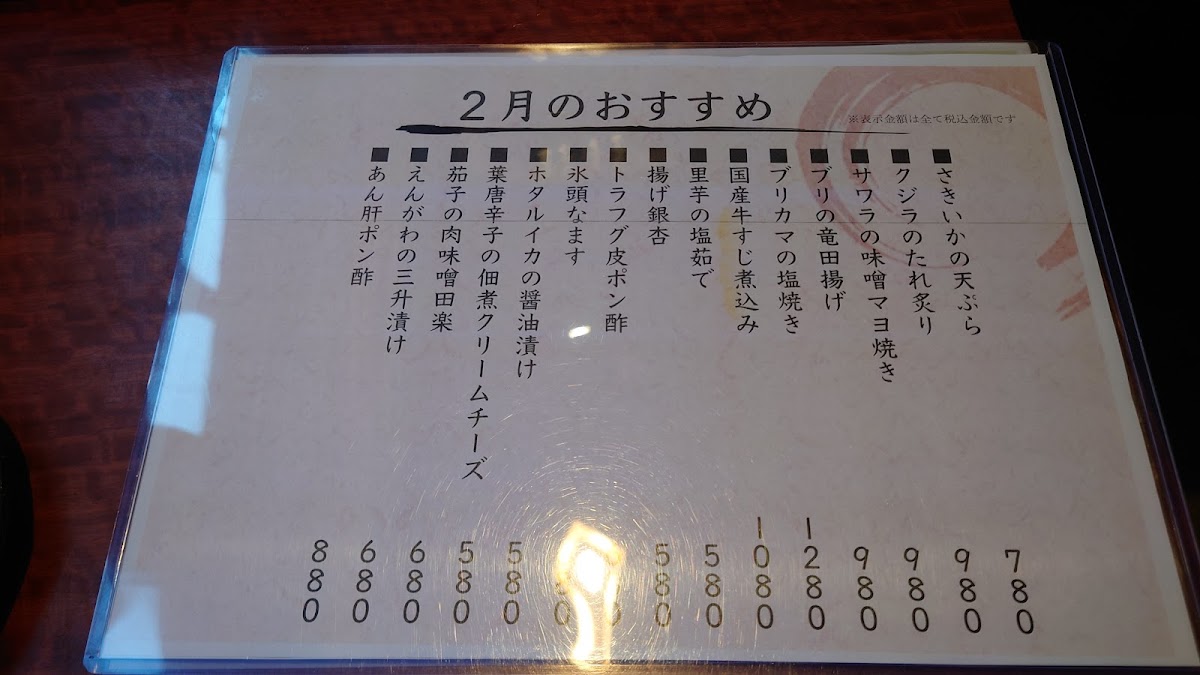 2月のおすすめ
※表示金額は全て税込金額です
■さきいかの天ぷら 780
■クジラのたれ炙り 980
■サワラの味噌マヨ焼き 980
■ブリの竜田揚げ 980
■ブリカマの塩焼き 1280
■国産牛すじ煮込み 1080
■里芋の塩茹で 580
■揚げ銀杏 580
■トラフグ皮ポン酢
■氷頭なます
■ホタルイカの醤油漬け 580
■葉唐辛子の佃煮クリームチーズ 580
■茄子の肉味噌田楽 680
■えんがわの三升漬け 680
■あん肝ポン酢 880